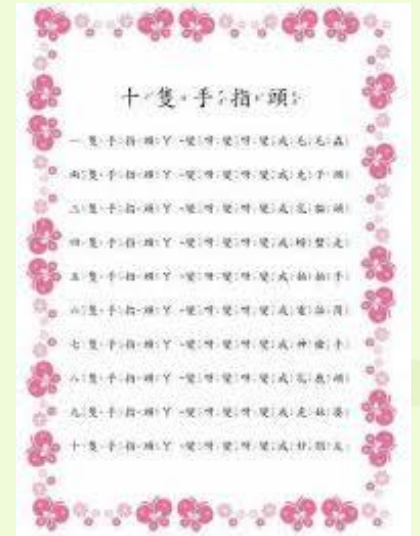 十隻手指頭
一隻手指頭丫 變呀變呀變成毛毛蟲
兩隻手指頭丫 變呀變呀變成兔子頭
三隻手指頭丫 變呀變呀變成花貓頭
四隻手指頭丫 變呀變呀變成螃蟹走
五隻手指頭丫 變呀變呀變成拍拍手
六隻手指頭丫 變呀變呀變成電話筒
七隻手指頭丫 變呀變呀變成神槍手
八隻手指頭丫 變呀變呀變成花鹿頭
九隻手指頭丫 變呀變呀變成虎姑婆
十隻手指頭丫 變呀變呀變成好朋友